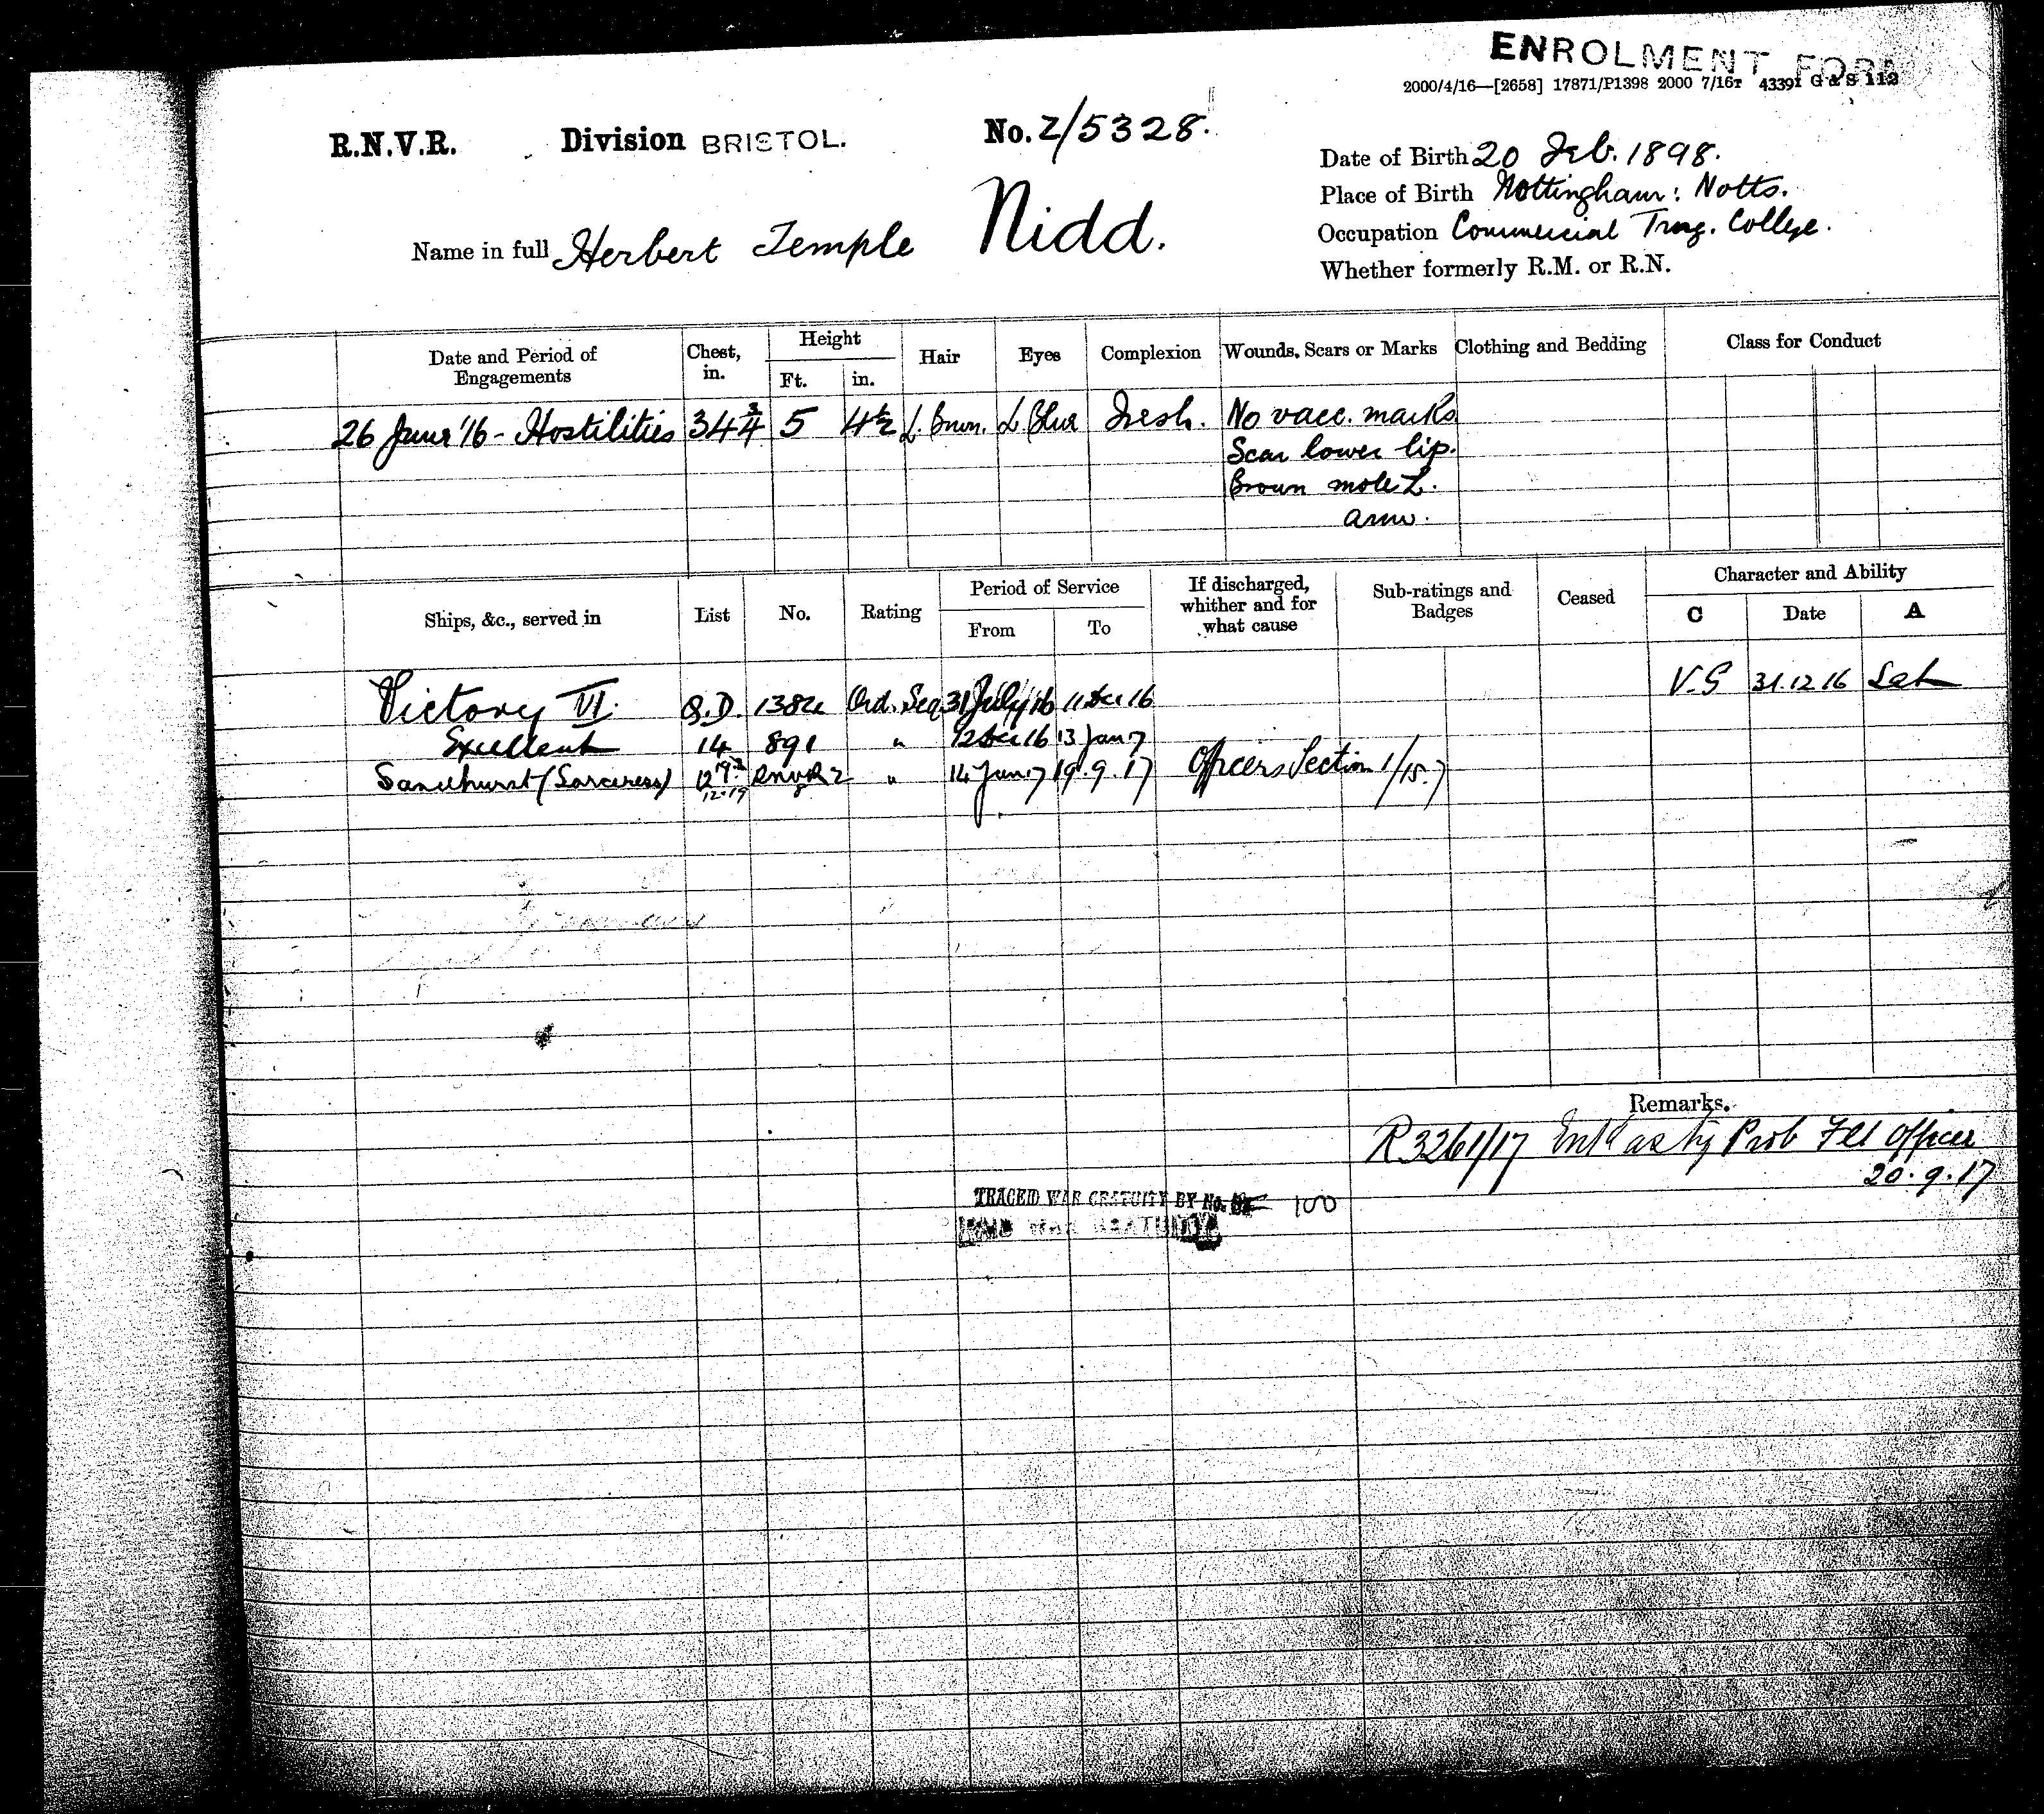 ENROLMENT FORM
2000/4/16—[2658] 17871/P1398 2000 7/16T 43391 G & S 112
R.N.V.R. Division BRISTOL. No. Z/5328.
Date of Birth 20 Feb. 1898.
Place of Birth Nottingham: Notts.
Name in full Herbert Temple Nidd.
Occupation Commercial Trng. College.
Whether formerly R.M. or R.N.
Date and Period of Engagements Chest, in. Height Ft. in. Hair Eyes Complexion Wounds, Scars or Marks Clothing and Bedding Class for Conduct
26 June '16 - Hostilities 34 3/4 5 4 1/2 L. Brwn. L. Blue Fresh. No vacc. marks
Scar lower lip.
Brown mole L.
arm.
Ships, &c., served in List No. Rating Period of Service From To If discharged, whither and for what cause Sub-ratings and Badges Ceased Character and Ability C Date A
Victory VI. Q.D. Ord. Sea 31 July 16 11 Dec 16 V.G 31.12.16 Sat
Excellent 14 891 " 12 Dec 16 13 Jan 7
Sandhurst (Sorceress) 12 RNVR 2 " 14 Jan 17 19.9.17 Officers Section 1/15.7
12.19
Remarks.
R3261/17 Ent as Ty Prob Flt Officer
20.9.17
TRACED WAR GRATUITY BY No. 100
PAID WAR GRATUITY